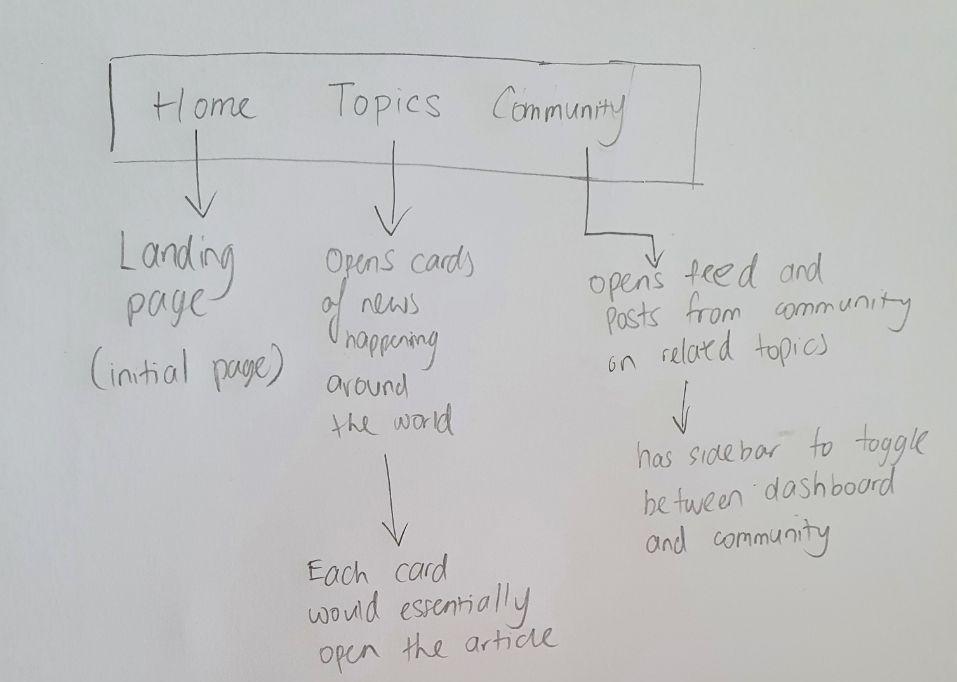 Home Topics Community
Landing
page
(initial page)
Opens cards
of news
happening
around
the world
Each card
would essentially
open the article
opens feed and
posts from community
on related topics
has sidebar to toggle
between dashboard
and community